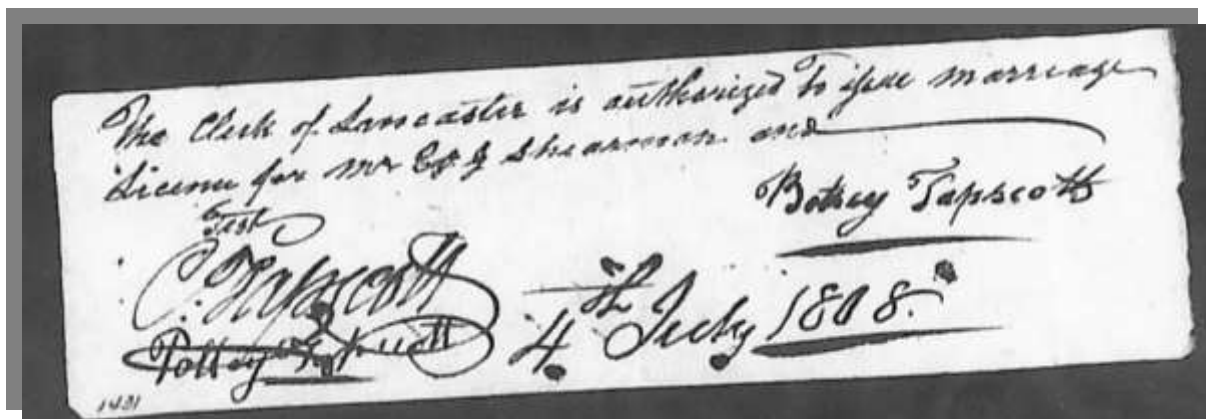 The Clerk of Lancaster is authorized to issue marriage
License for Mr Shearman and
Betsey Tapscott
Test
C. Tapscott
4th July 1808.
Polley
1431